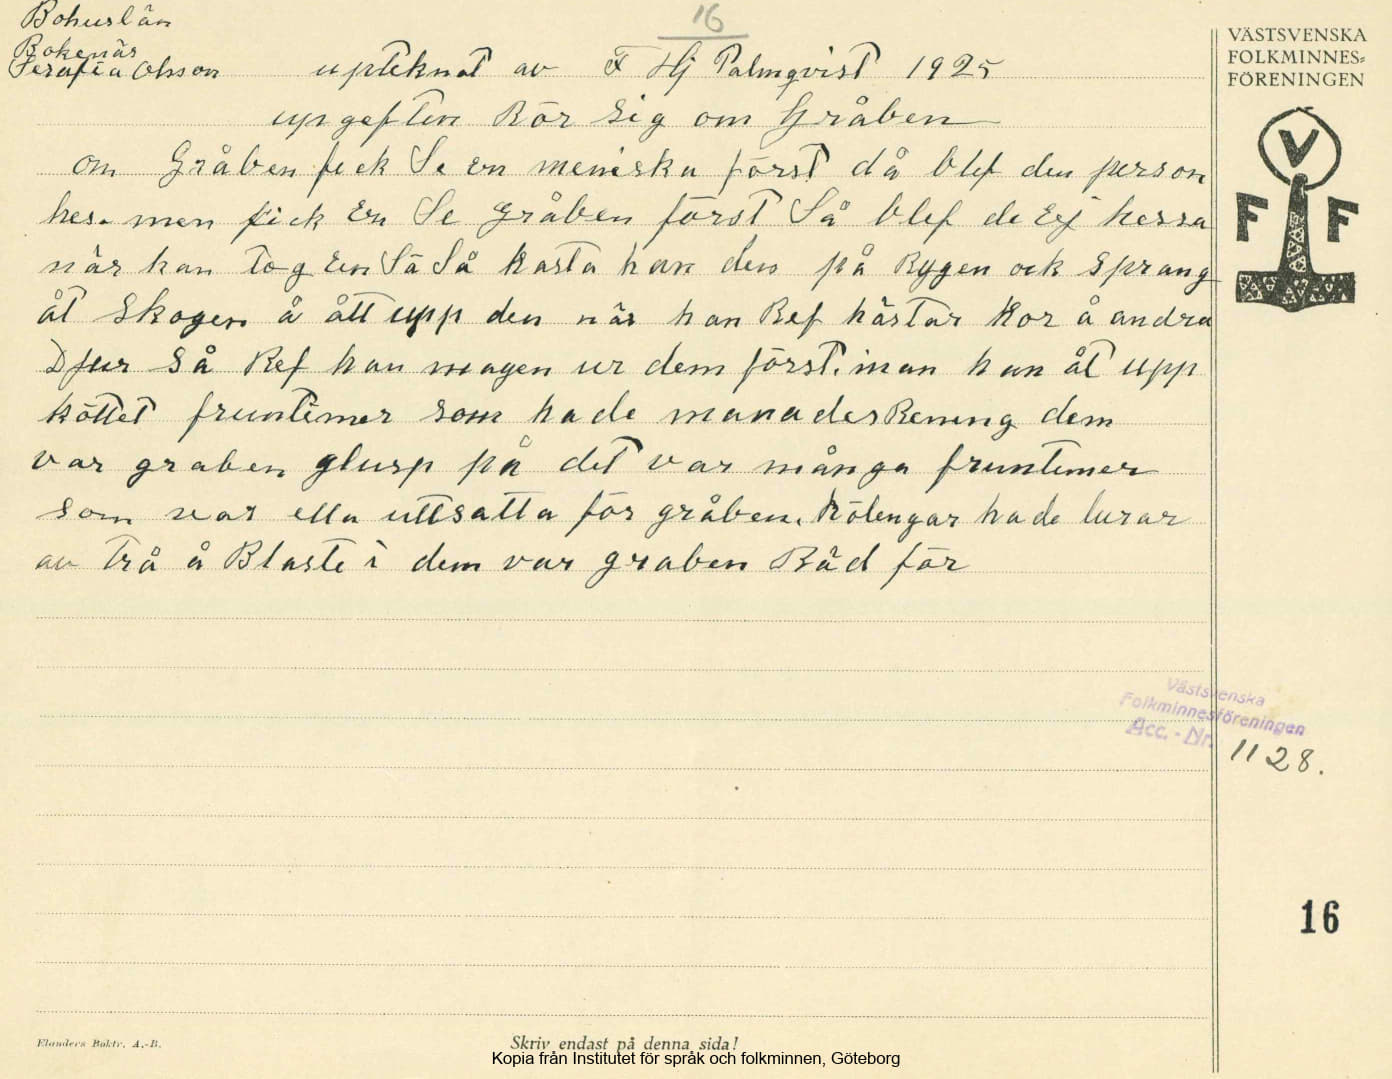 Bohuslän
16
Bokenäs
Serafia Olsson upteknat av F Hj Palmqvist 1925
upgeften Rör sig om Gråben
om Gråben fick Se En meniska först då blef den person
hes. men fick En Se Gråben först Så blef de Ej hessa
när han tog Een Så Så kasta han den på Rygen ock sprang
åt Skogen å ått upp den när han Ref hästar Kor å andra
Djur Så Ref han magen ur dem först. inan han åt upp
köttet fruntimer som hade manadesRening dem
var graben glusp på det var många fruntimer
som var ella uttsatta för gråben. Kölengar hade lurar
av Trå å Blaste i dem var graben Räd för
VÄSTSVENSKA
FOLKMINNES-
FÖRENINGEN
V
F F
Västsvenska
Folkminnesföreningen
Acc. - Nr. 1128.
16
Elanders Boktr. A.-B.
Skriv endast på denna sida!
Kopia från Institutet för språk och folkminnen, Göteborg